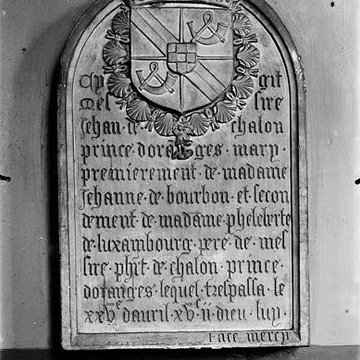 Cy gist
Mes sire
Jehan de chalon
prince doranges · mary ·
premierement · de madame
Jehanne · de bourbon · et secon
dement · de madame · pheleberte
de · luxambourg · pere · de · mes
sire · phit · de chalon · prince ·
doranges · lequel · trespassa · le
xxv · dauril · xv · ii · dieu · luy ·
face mercy